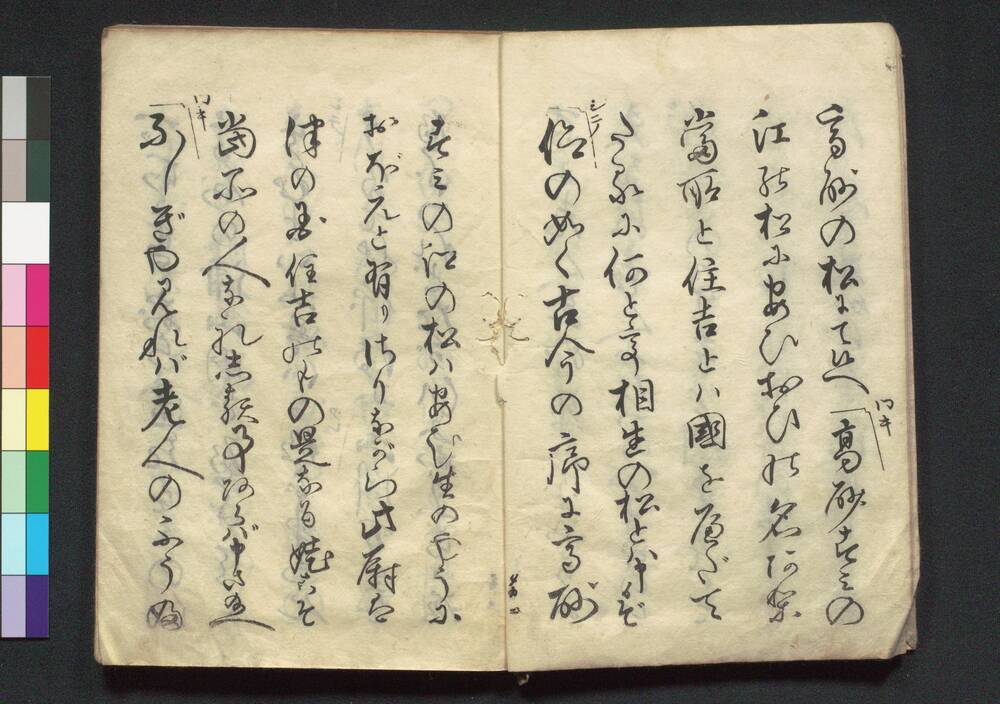 高砂の松にて候へ「高砂すみの
江の松にあひおひの名あり
當所と住吉とハ國をへだて
たるに何とて相生の松とハ申ぞ
「仰の如く古今の序に高砂
すみの江の松ハあひ生のやうに
おぼえとあり さりながら此尉は
津の国住吉のもの是なる姥こそ
當所の人なれしる事あらバ申さ給へ
ふしぎやみれバ老人のふうふ
ワキ
シテ
ワキ